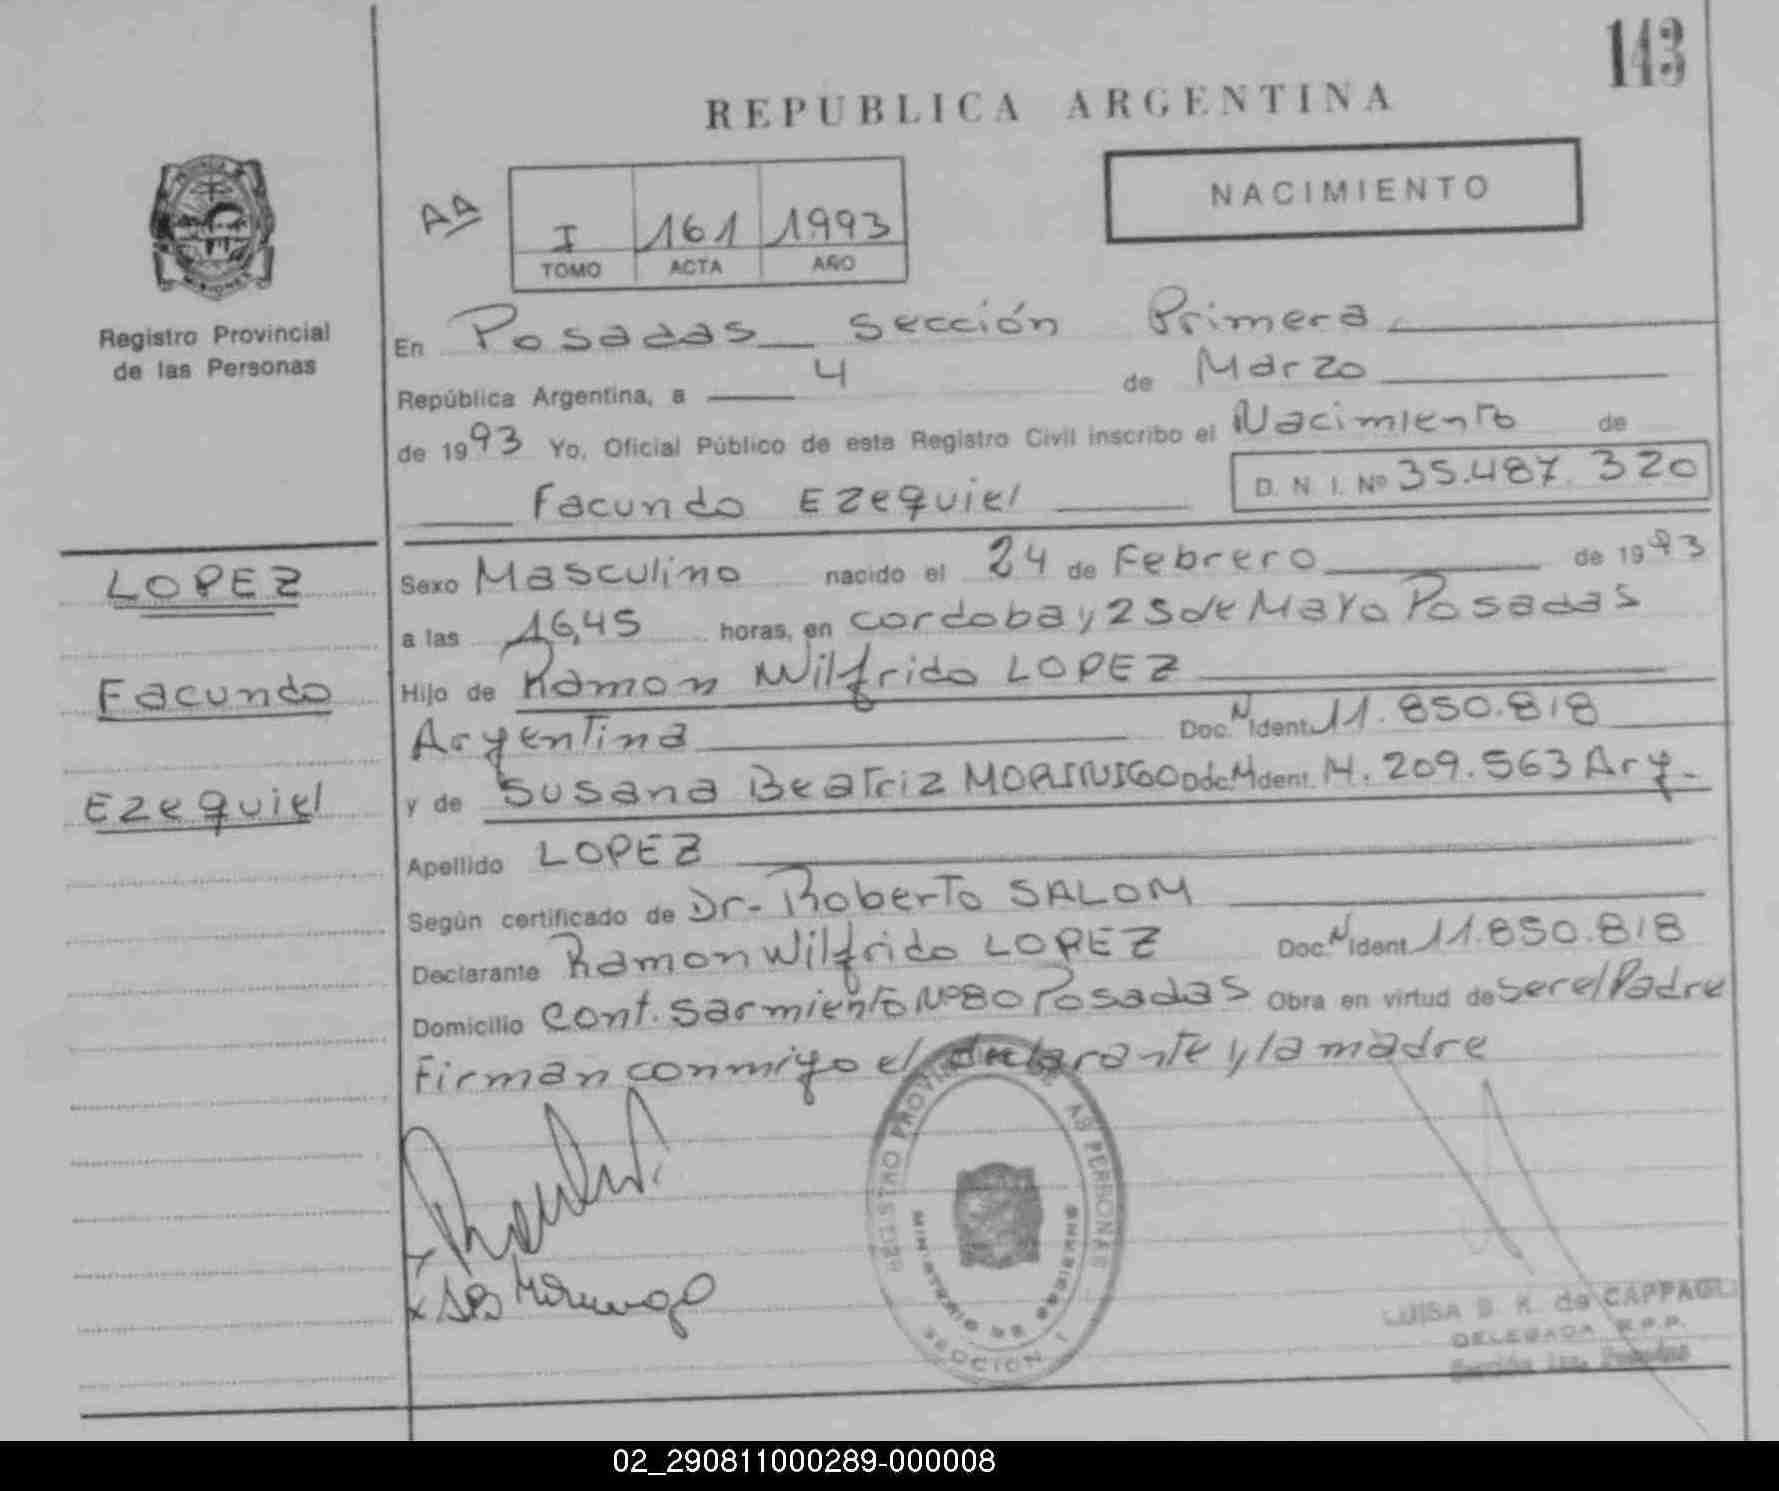 143
REPUBLICA ARGENTINA
NACIMIENTO
AA
I 161 1993
TOMO ACTA AÑO
Registro Provincial
de las Personas
En Posadas sección Primera
República Argentina, a 4 de Marzo
de 1993 Yo, Oficial Público de este Registro Civil inscribo el Nacimiento de
Facundo Ezequiel D. N. I. Nº 35.487.320
LOPEZ
Facundo
Ezequiel
Sexo Masculino nacido el 24 de Febrero de 1993
a las 16,45 horas, en cordoba y 25 de Mayo Posadas
Hijo de Ramon Wilfrido LOPEZ
Argentina Doc. N Ident. 11.850.818
y de Susana Beatriz MORINIGO Doc. N Ident. 14.209.563 Arg.
Apellido LOPEZ
Según certificado de Dr. Roberto SALOM
Declarante Ramon Wilfrido LOPEZ Doc. N Ident. 11.850.818
Domicilio cont. sarmiento Nº 80 Posadas Obra en virtud de ser el Padre
Firman conmigo el declarante y la madre
REGISTRO PROVINCIAL DE LAS PERSONAS
MINISTERIO DE GOBIERNO
SECCION 1
LUISA B. K. de CAPPAGLI
DELEGADA R.P.P.
Sección 1ra. Posadas
02_290811000289-000008